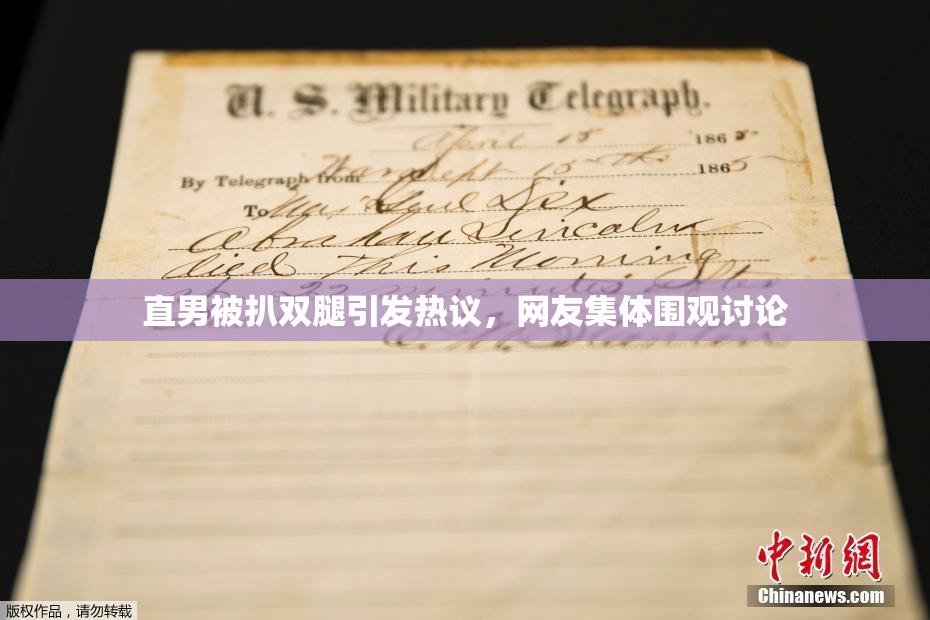 U. S. Military Telegraph.
April 15 1865
By Telegraph from War Dept 15th 1865
To Maj Genl Dix
Abraham Lincoln
died This Morning
at 22 minutes after
直男被扒双腿引发热议，网友集体围观讨论
E. M. Stanton
中新网
Chinanews.com
版权作品，请勿转载